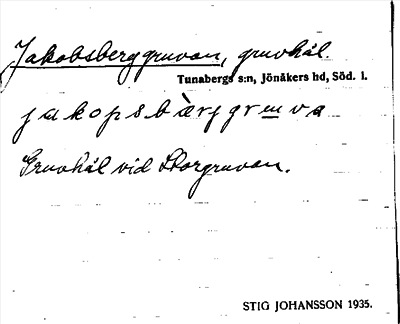 Jakobsberggruvan, gruvhål
Tunabergs s:n, Jönåkers hd, Söd. l.
jakopsbàrjgruva
Gruvhål vid Storgruvan.
STIG JOHANSSON 1935.